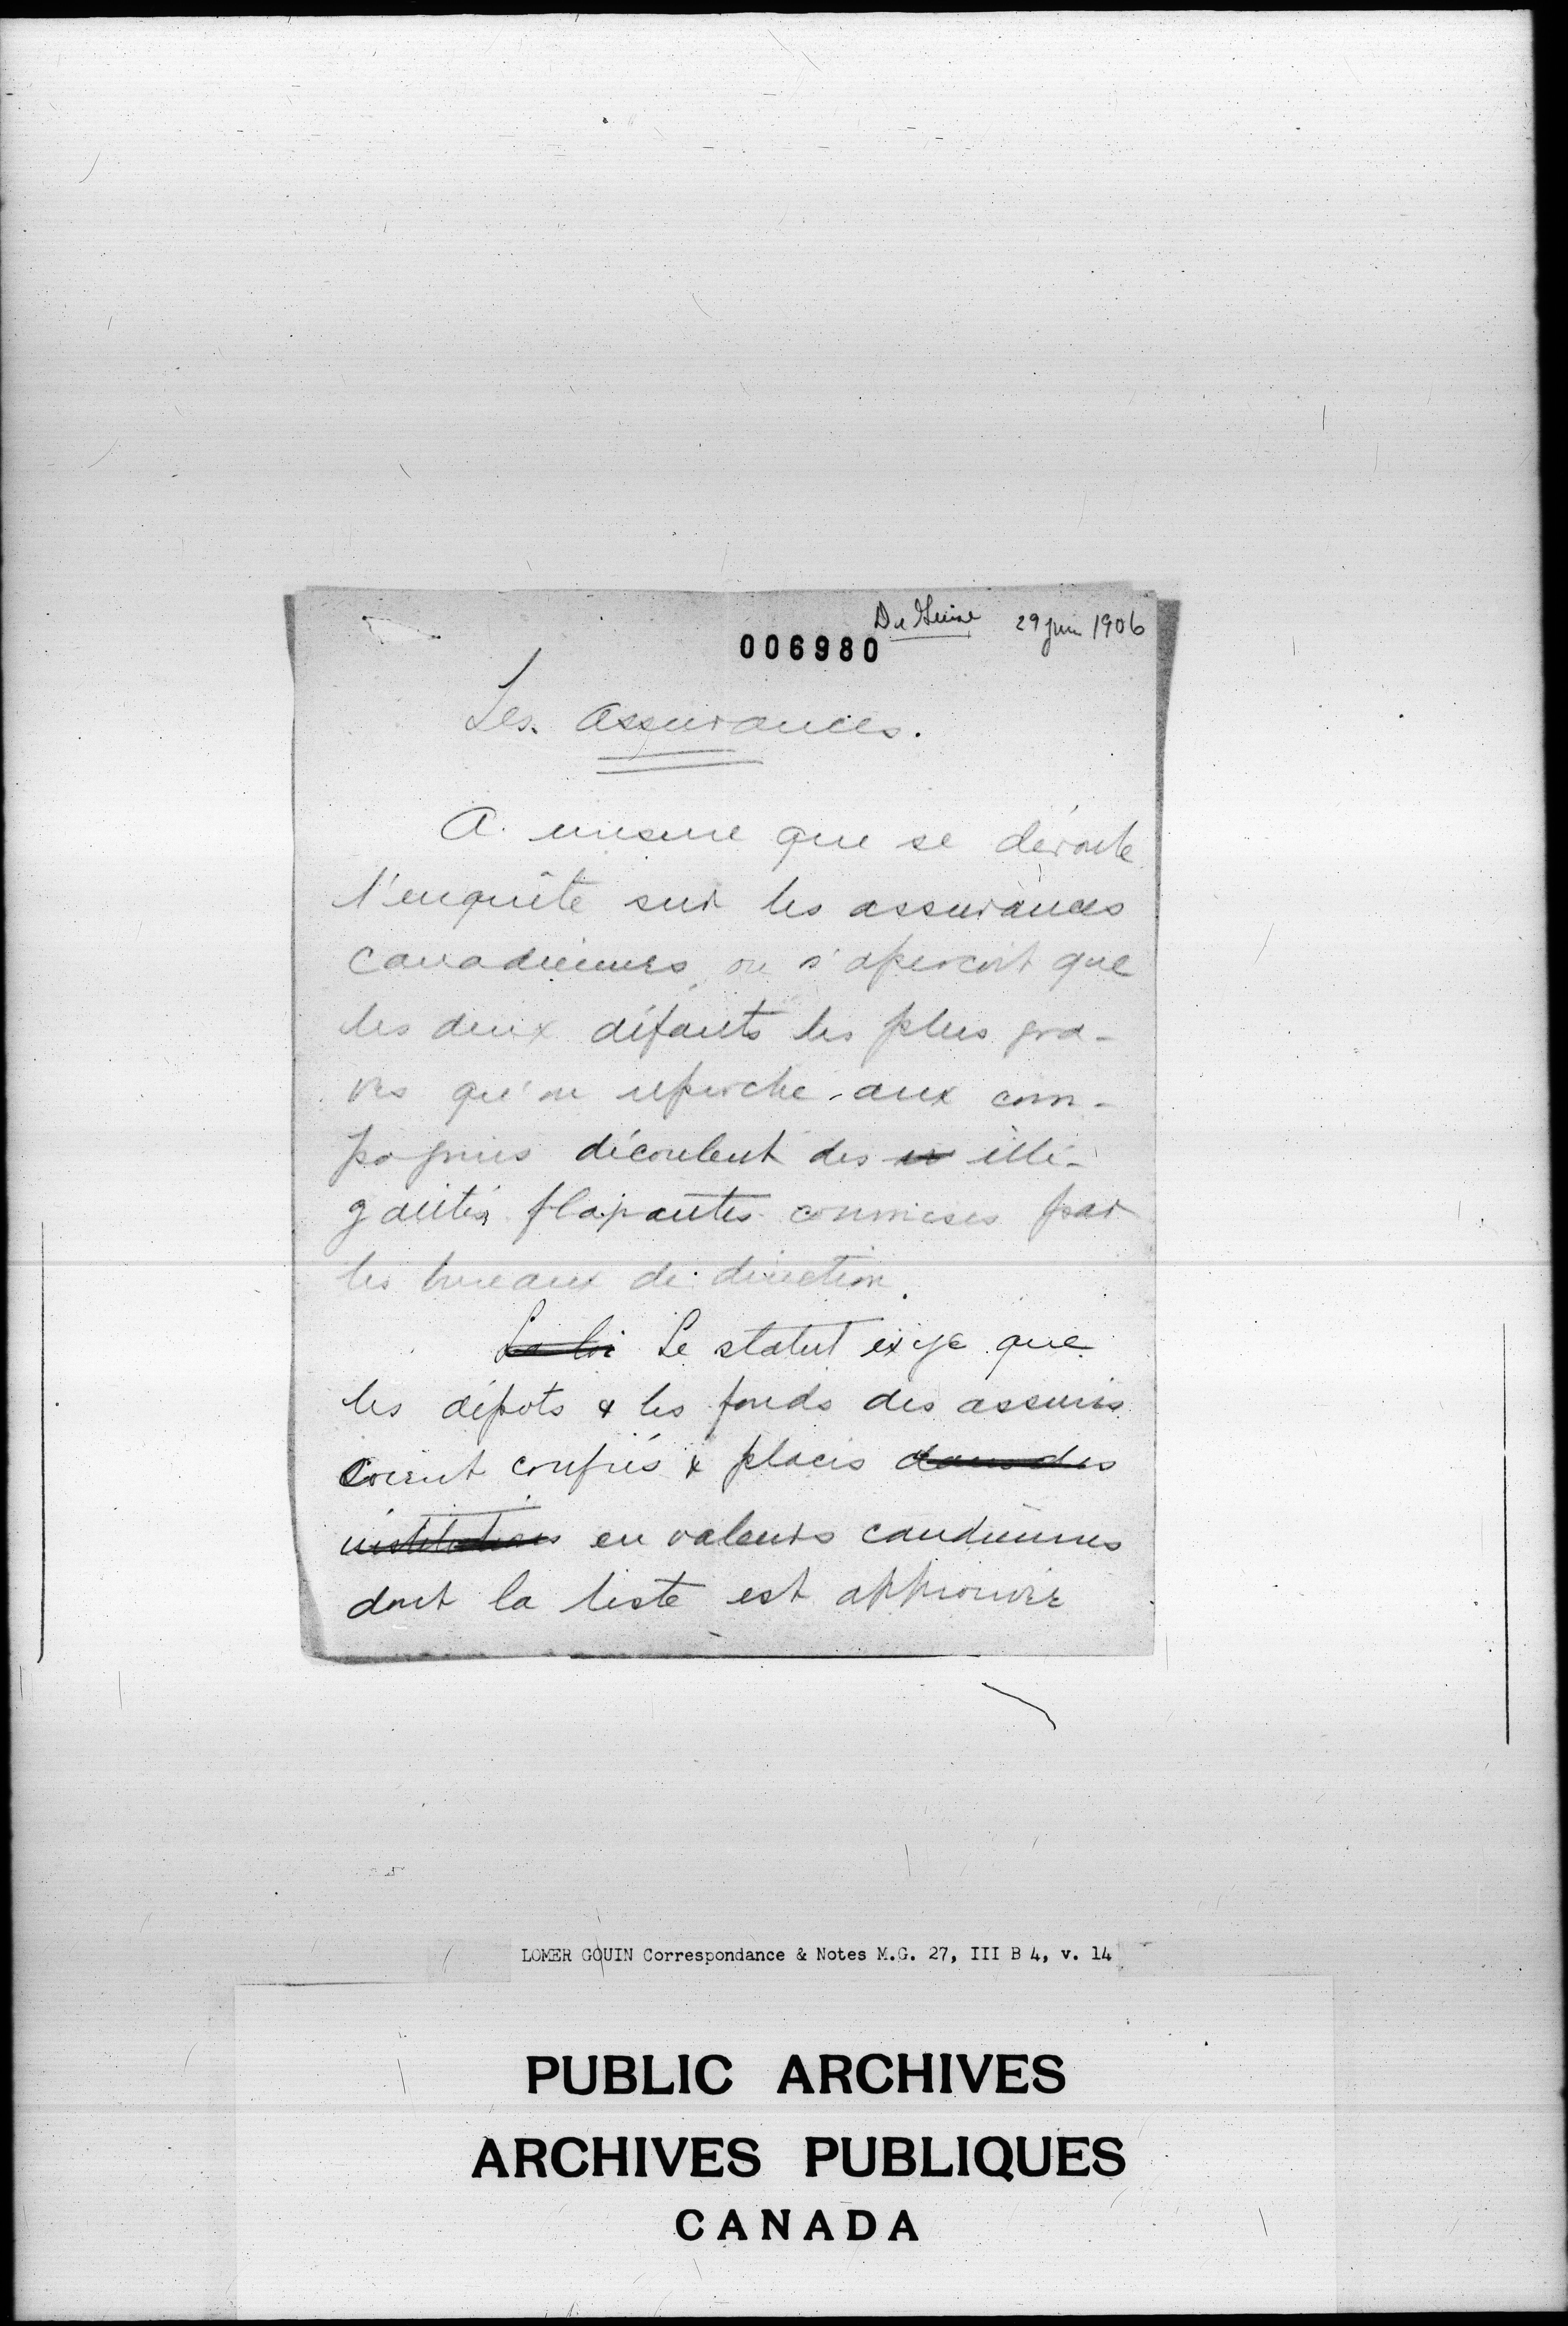 De Guise 29 juin 1906
006980
Les Assurances.
A mesure que se déroule
l'enquête sur les assurances
canadiennes, on s'aperçoit que
les deux défauts les plus gra-
ves qu'on reproche aux com-
pagnies découlent des illé-
galités flagrantes commises par
les bureaux de direction.
La loi Le statut exige que
les dépots & les fonds des assurés
soient confiés & placés dans des
institutions en valeurs candiennes
dont la liste est approuvée
LOMER GOUIN Correspondance & Notes M.G. 27, III B 4, v. 14
PUBLIC ARCHIVES
ARCHIVES PUBLIQUES
CANADA